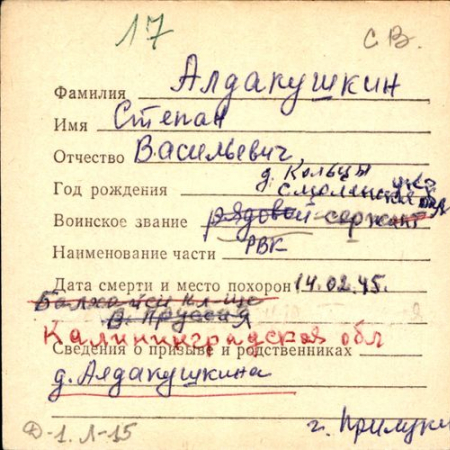 17
С В.
Фамилия Алдакушкин
Имя Степан
Отчество Васильевич,
д. Кольцы
Год рождения Смоленская обл
Воинское звание рядовой сержант
Наименование части РВК
Дата смерти и место похорон 14.02.45.
В. Пруссия
Калининградская обл
Сведения о призыве и родственниках
д. Алдакушкина
г. Прилуки
Ф-1. Л-15